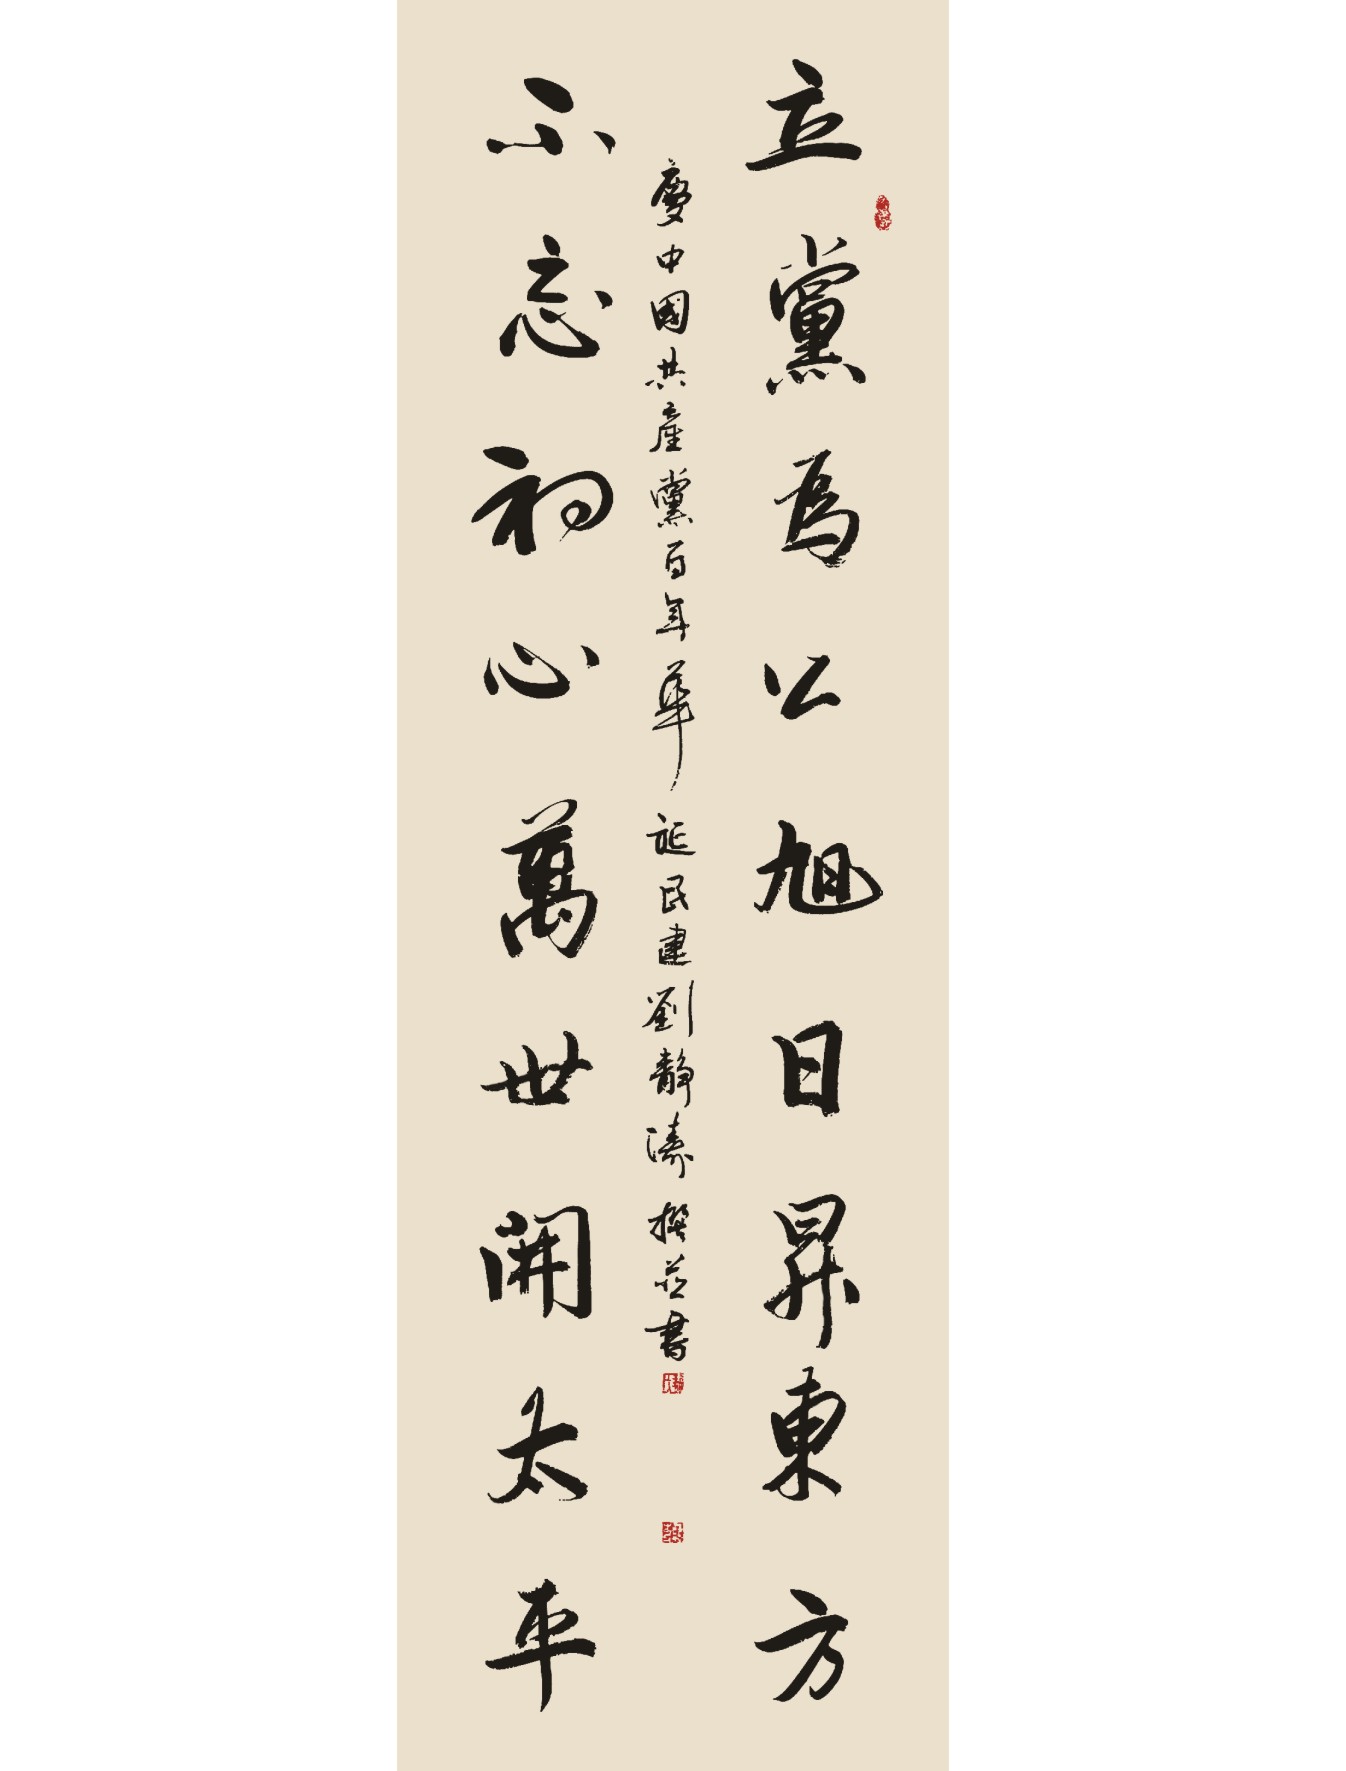 立黨為公旭日昇東方
慶中國共產黨百年華誕民建劉靜濤撰并書
不忘初心萬世開太平